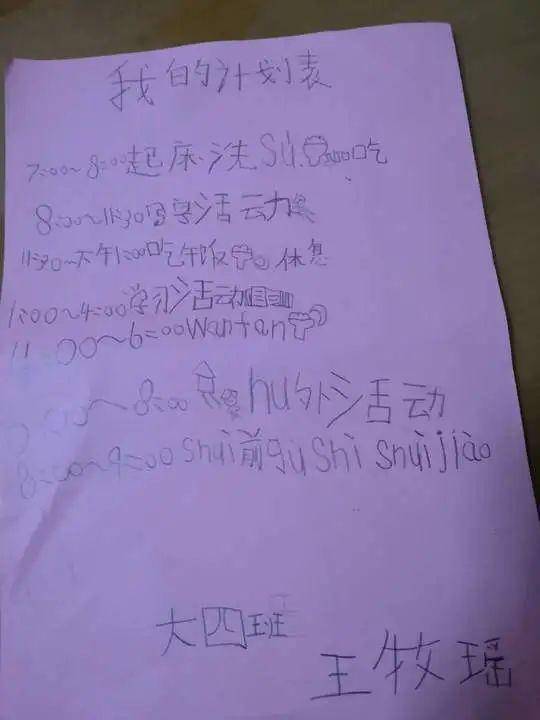 我的计划表
7:00~8:00起床洗Sú吃
8:00~11:30写字活动
11:30~下午1:00吃午饭休息
1:00~4:00学习活动
00~6:00Wantan
~8:00hu外活动
8:00~9:00shuì前gùshi shuìjiào
大四班
王牧瑶